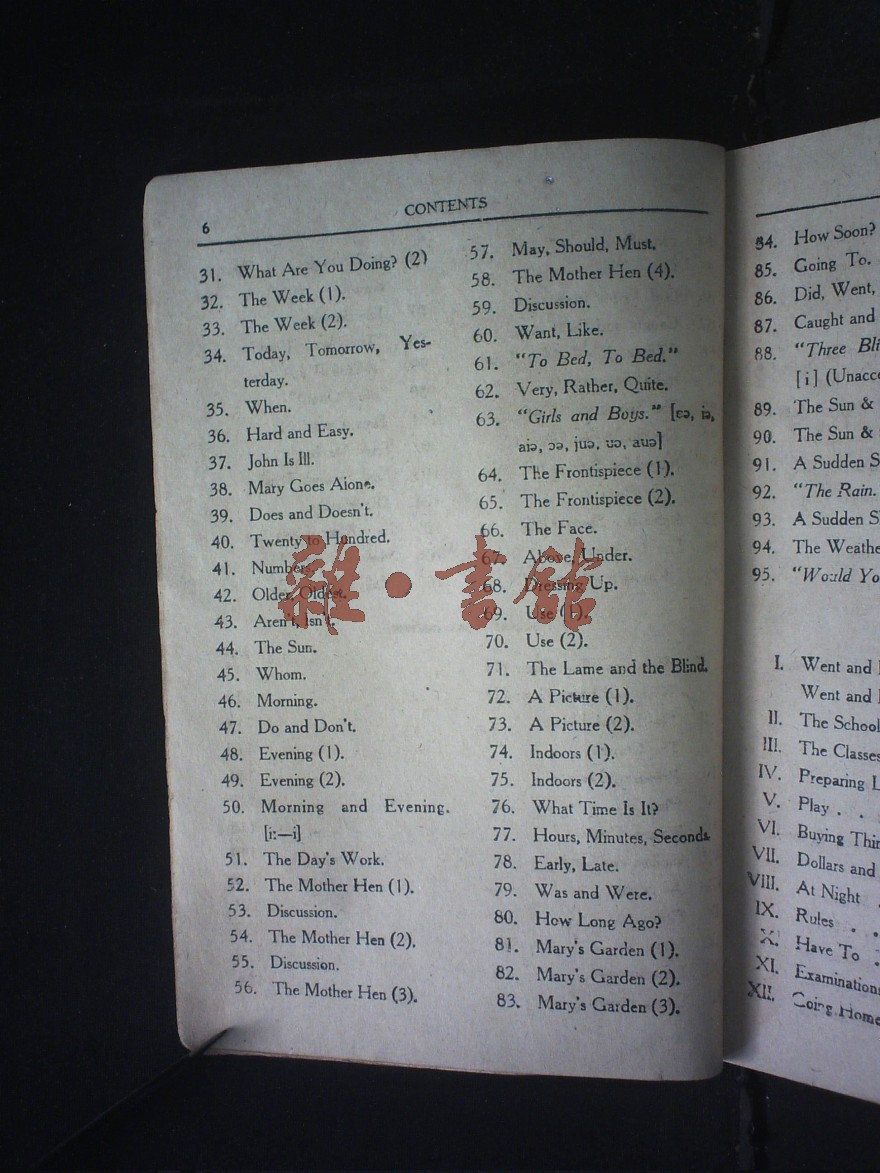 6
CONTENTS
31. What Are You Doing? (2)
32. The Week (1).
33. The Week (2).
34. Today, Tomorrow, Yes-
terday.
35. When.
36. Hard and Easy.
37. John Is Ill.
38. Mary Goes Alone.
39. Does and Doesn't.
40. Twenty to Hundred.
41. Numbers.
42. Older, Oldest.
43. Aren't, Isn't.
44. The Sun.
45. Whom.
46. Morning.
47. Do and Don't.
48. Evening (1).
49. Evening (2).
50. Morning and Evening.
[i:—i]
51. The Day's Work.
52. The Mother Hen (1).
53. Discussion.
54. The Mother Hen (2).
55. Discussion.
56. The Mother Hen (3).
57. May, Should, Must.
58. The Mother Hen (4).
59. Discussion.
60. Want, Like.
61. "To Bed, To Bed."
62. Very, Rather, Quite.
63. "Girls and Boys." [ɛə, iə,
aiə, ɔə, juə, uə, auə]
64. The Frontispiece (1).
65. The Frontispiece (2).
66. The Face.
67. Above, Under.
68. Dressing Up.
69. Use (1).
70. Use (2).
71. The Lame and the Blind.
72. A Picture (1).
73. A Picture (2).
74. Indoors (1).
75. Indoors (2).
76. What Time Is It?
77. Hours, Minutes, Seconds.
78. Early, Late.
79. Was and Were.
80. How Long Ago?
81. Mary's Garden (1).
82. Mary's Garden (2).
83. Mary's Garden (3).
雜·書館
84. How Soon?
85. Going To.
86. Did, Went,
87. Caught and
88. "Three
[i]
89. The Sun &
90. The Sun &
91. A Sudden
92. "The Rain.
93. A Sudden
94. The
95. "Would
I. Went and
Went and
II. The School
III. The Classes
IV. Preparing
V. Play . .
VI. Buying
VII. Dollars and
VIII. At Night .
IX. Rules . .
X. Have To .
XI. Examinations
XII. Going Home